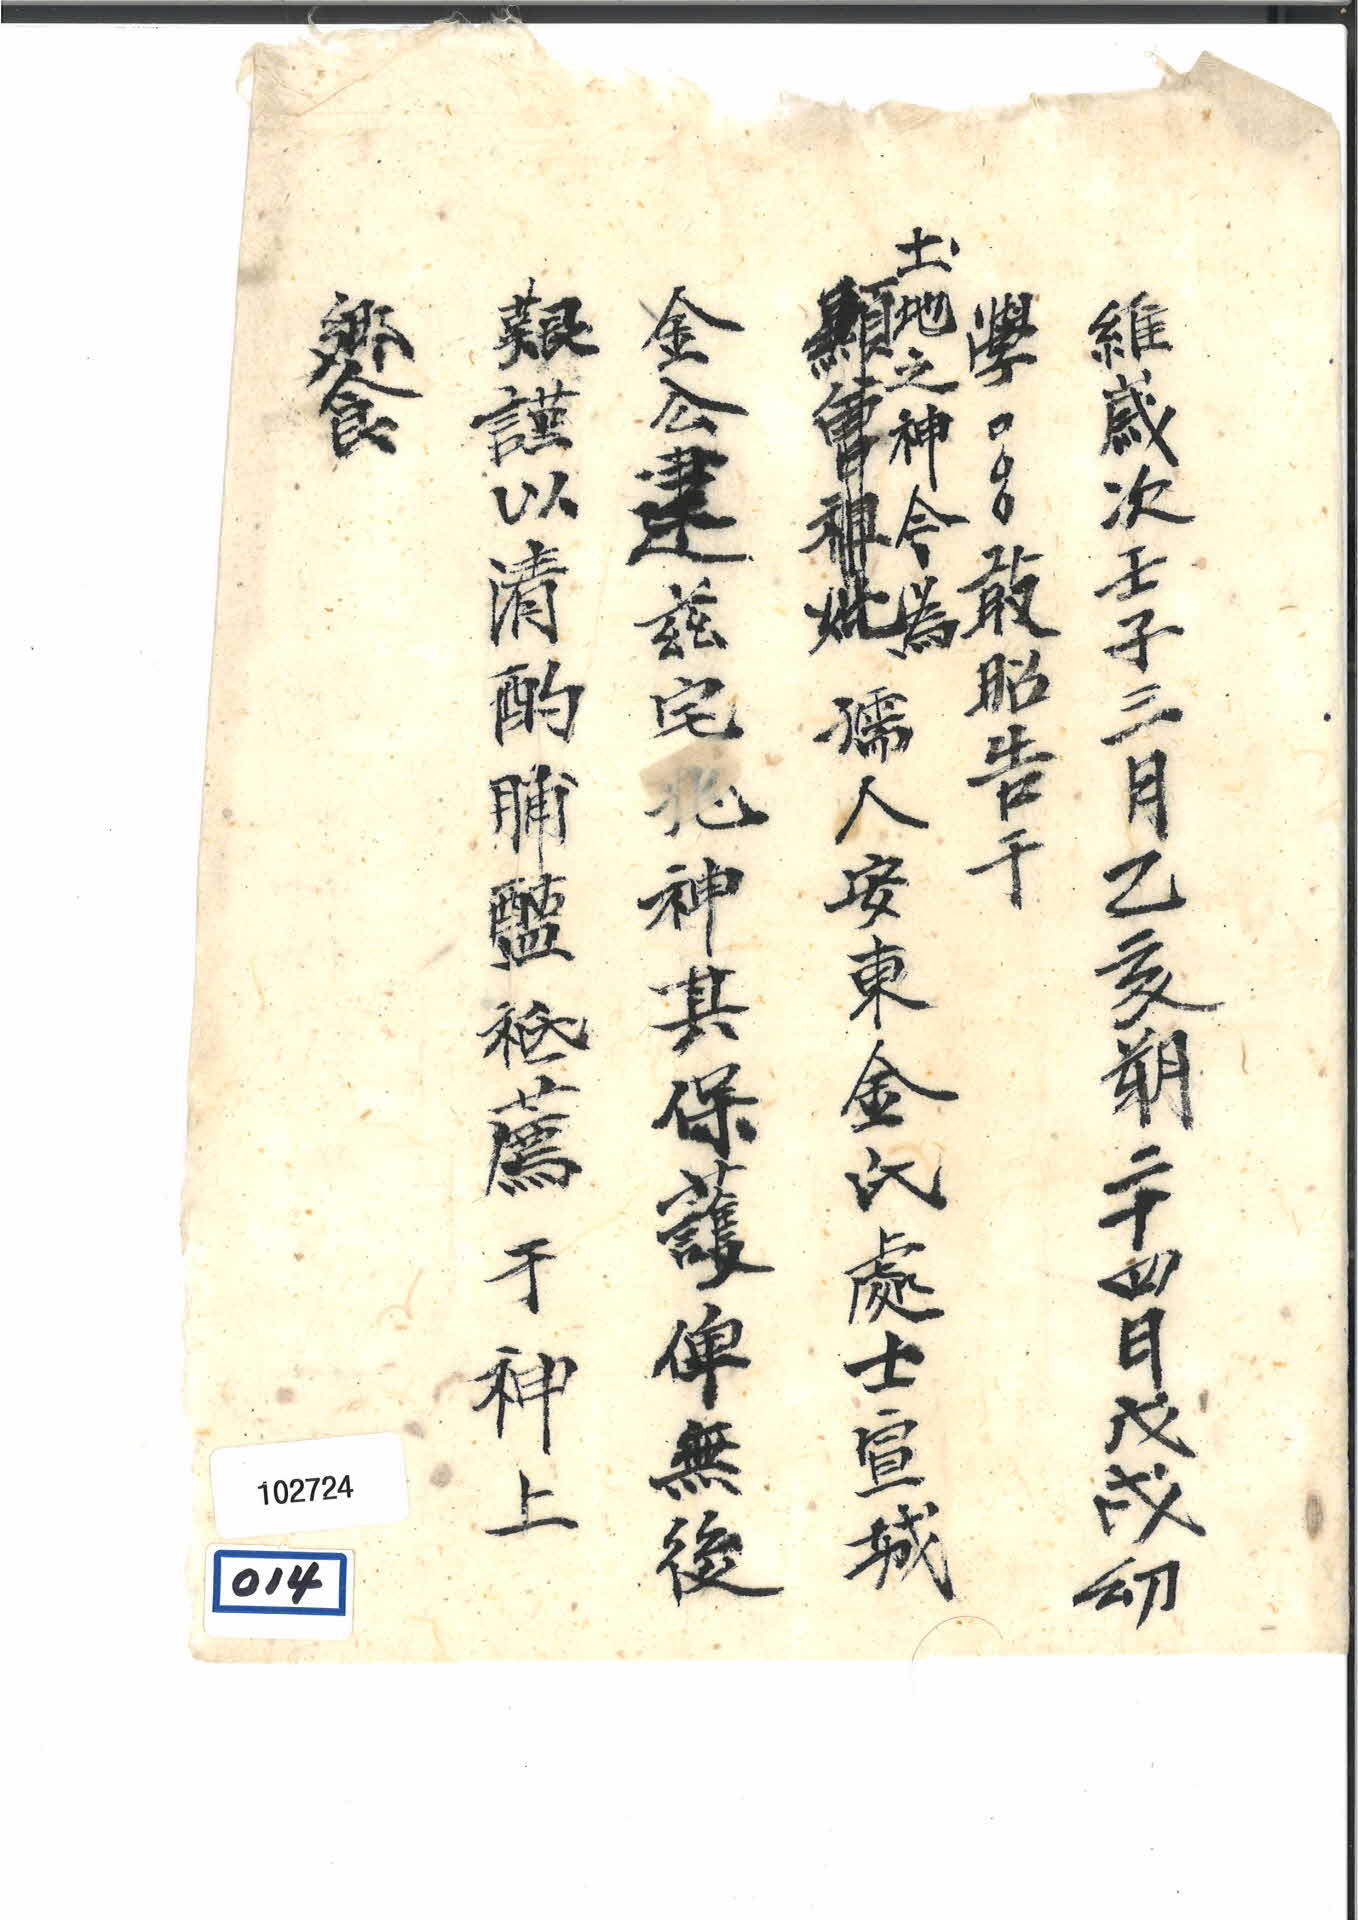 維歲次壬子三月乙亥朔二十四日戊戌幼
學○○○敢昭告于
土地之神今爲
顯曾祖妣孺人安東金氏處士宣城
金公建茲宅兆神其保護俾無後
艱謹以清酌脯醢祗薦于神上
饗
102724
014